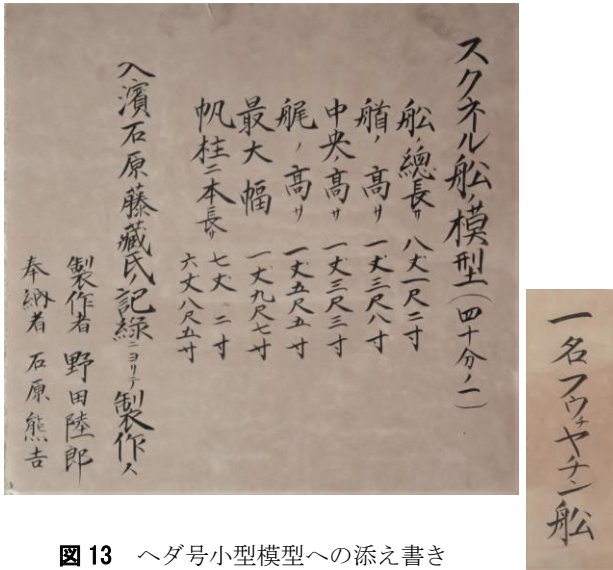 スクネル舩ノ模型(四十分ノ一)
舩ノ總長サ 八丈一尺二寸
艏ノ高サ 一丈三尺八寸
中央ノ高サ 一丈三尺三寸
艉ノ高サ 一丈五尺五寸
最大幅 一丈九尺七寸
帆柱二本長サ 七丈 二寸
六丈八尺五寸
入濱石原藤藏氏ノ記録ニヨリテ製作ス
製作者 野田陸郎
奉納者 石原熊吉
一名フウチヤチン舩
図13 ヘダ号小型模型への添え書き